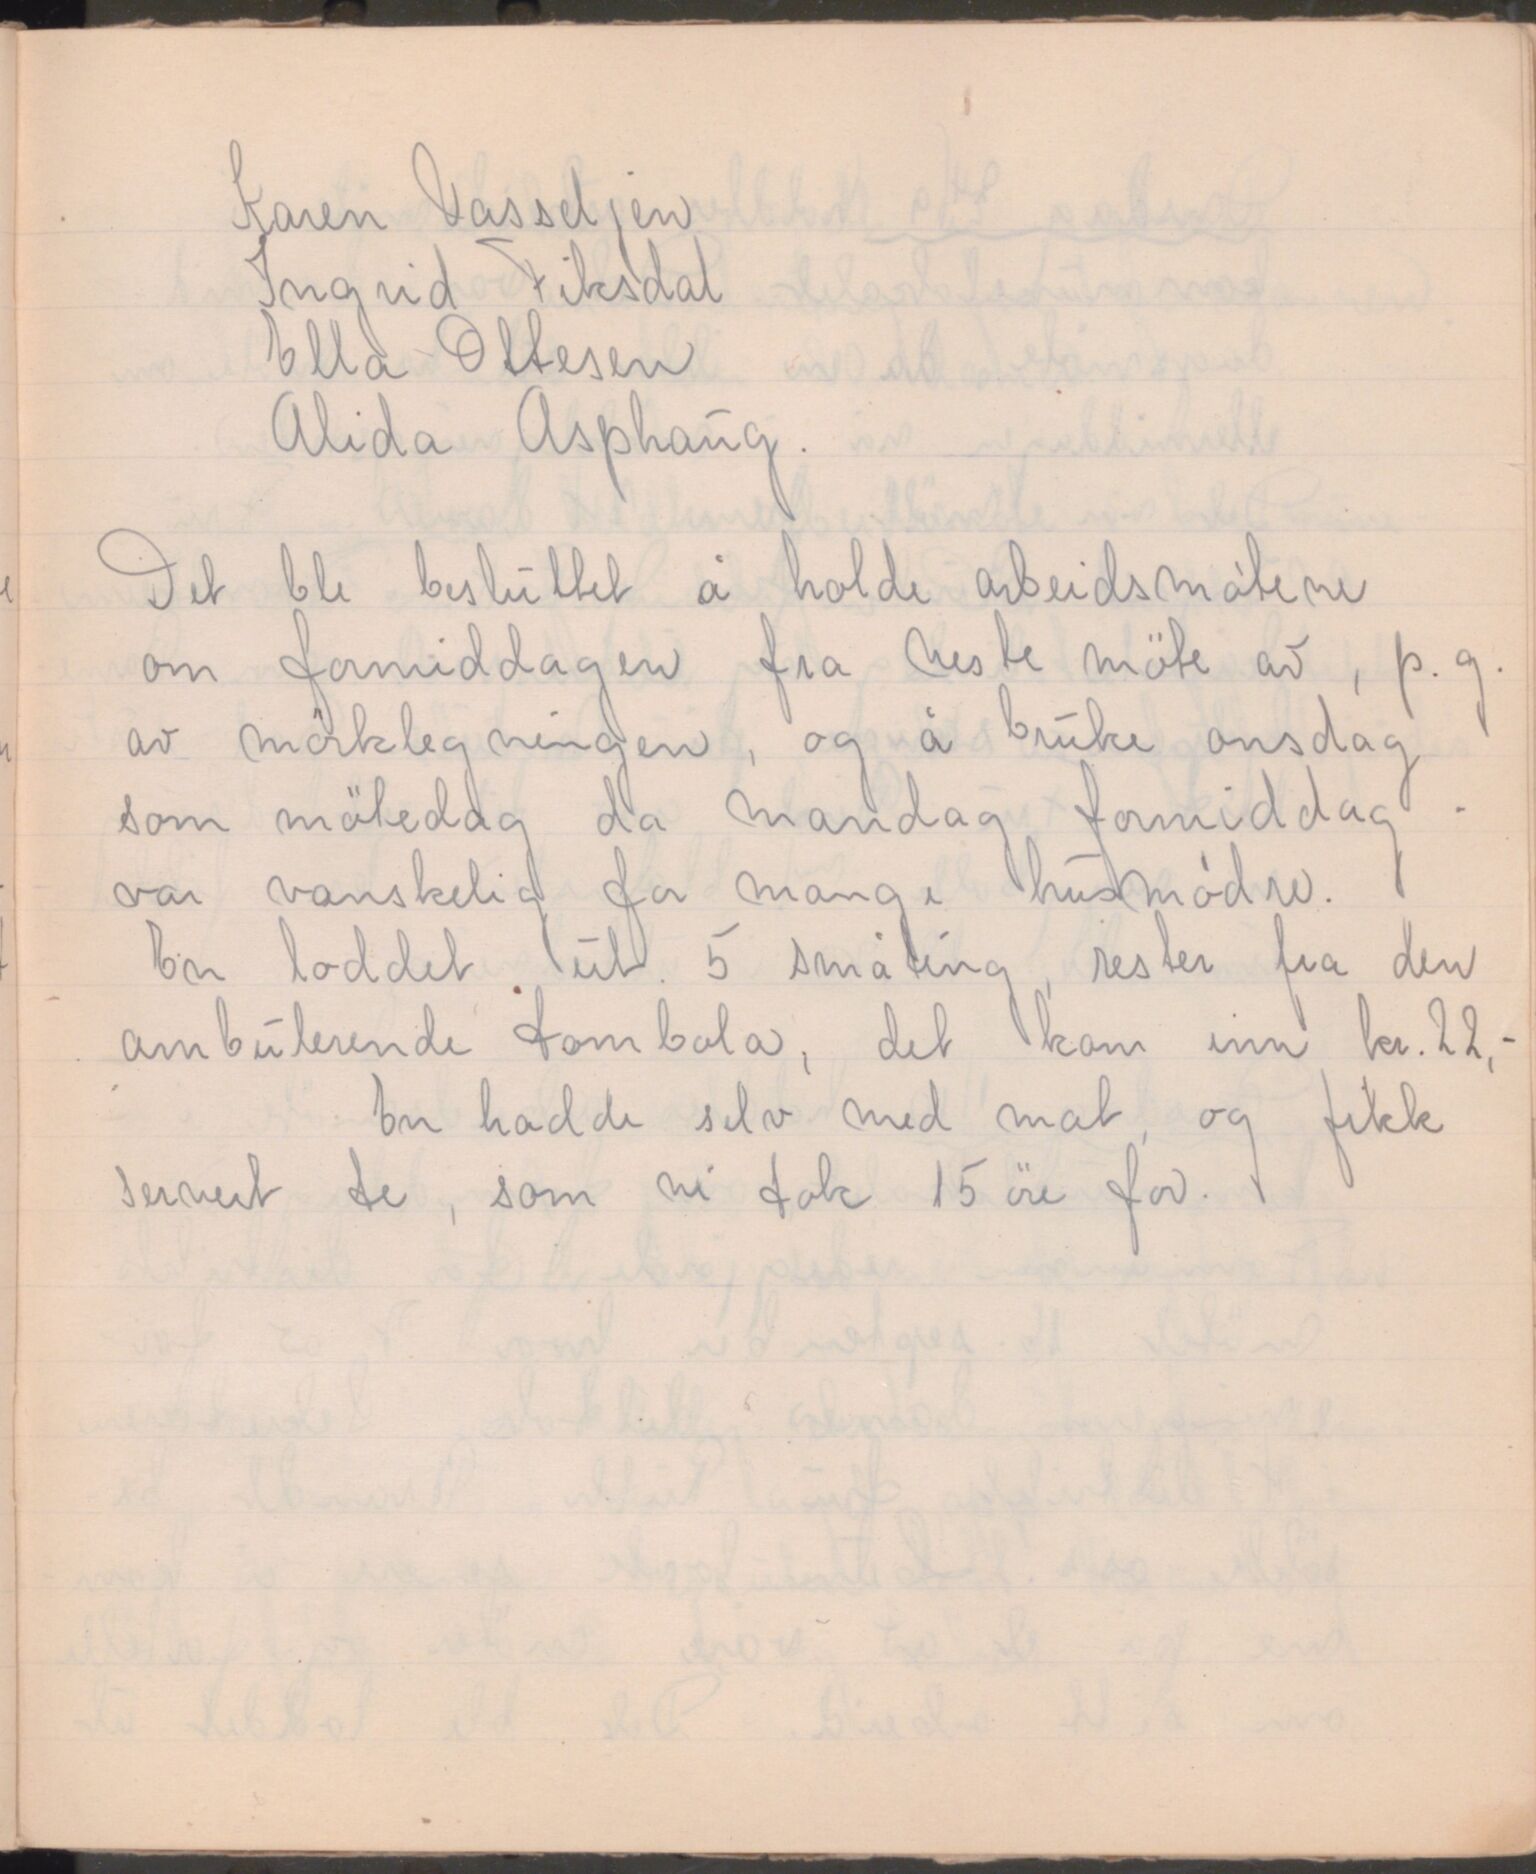 Karen Vasseljen
Ingrid Fiksdal
Ella Ottesen
Alida Asphaug.
Det ble besluttet å holde arbeidsmötene
om formiddagen fra neste möte av, p.g.
av mörklegningen, og å bruke onsdag
som mötedag da mandag formiddag
var vanskelig for mange husmödre.
En loddet ut 5 småting, rester fra den
ambulerende tombola, det kom inn kr. 22,-
En hadde selv med mat, og fikk
servert te, som vi tok 15 öre for.